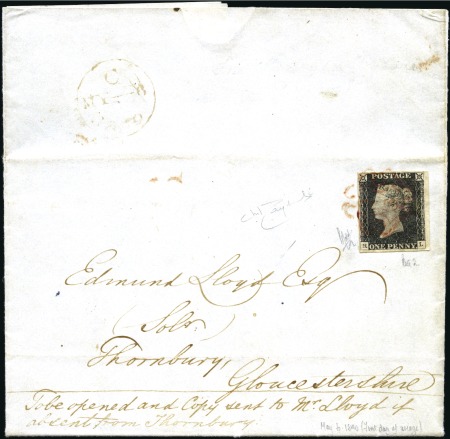 POSTAGE
ONE PENNY
Edmund Lloyd Esq
Solr.
Thornbury,
Gloucestershire
To be opened and Copy sent to Mr. Lloyd if
absent from Thornbury.
May 6 1840 (First day of usage)